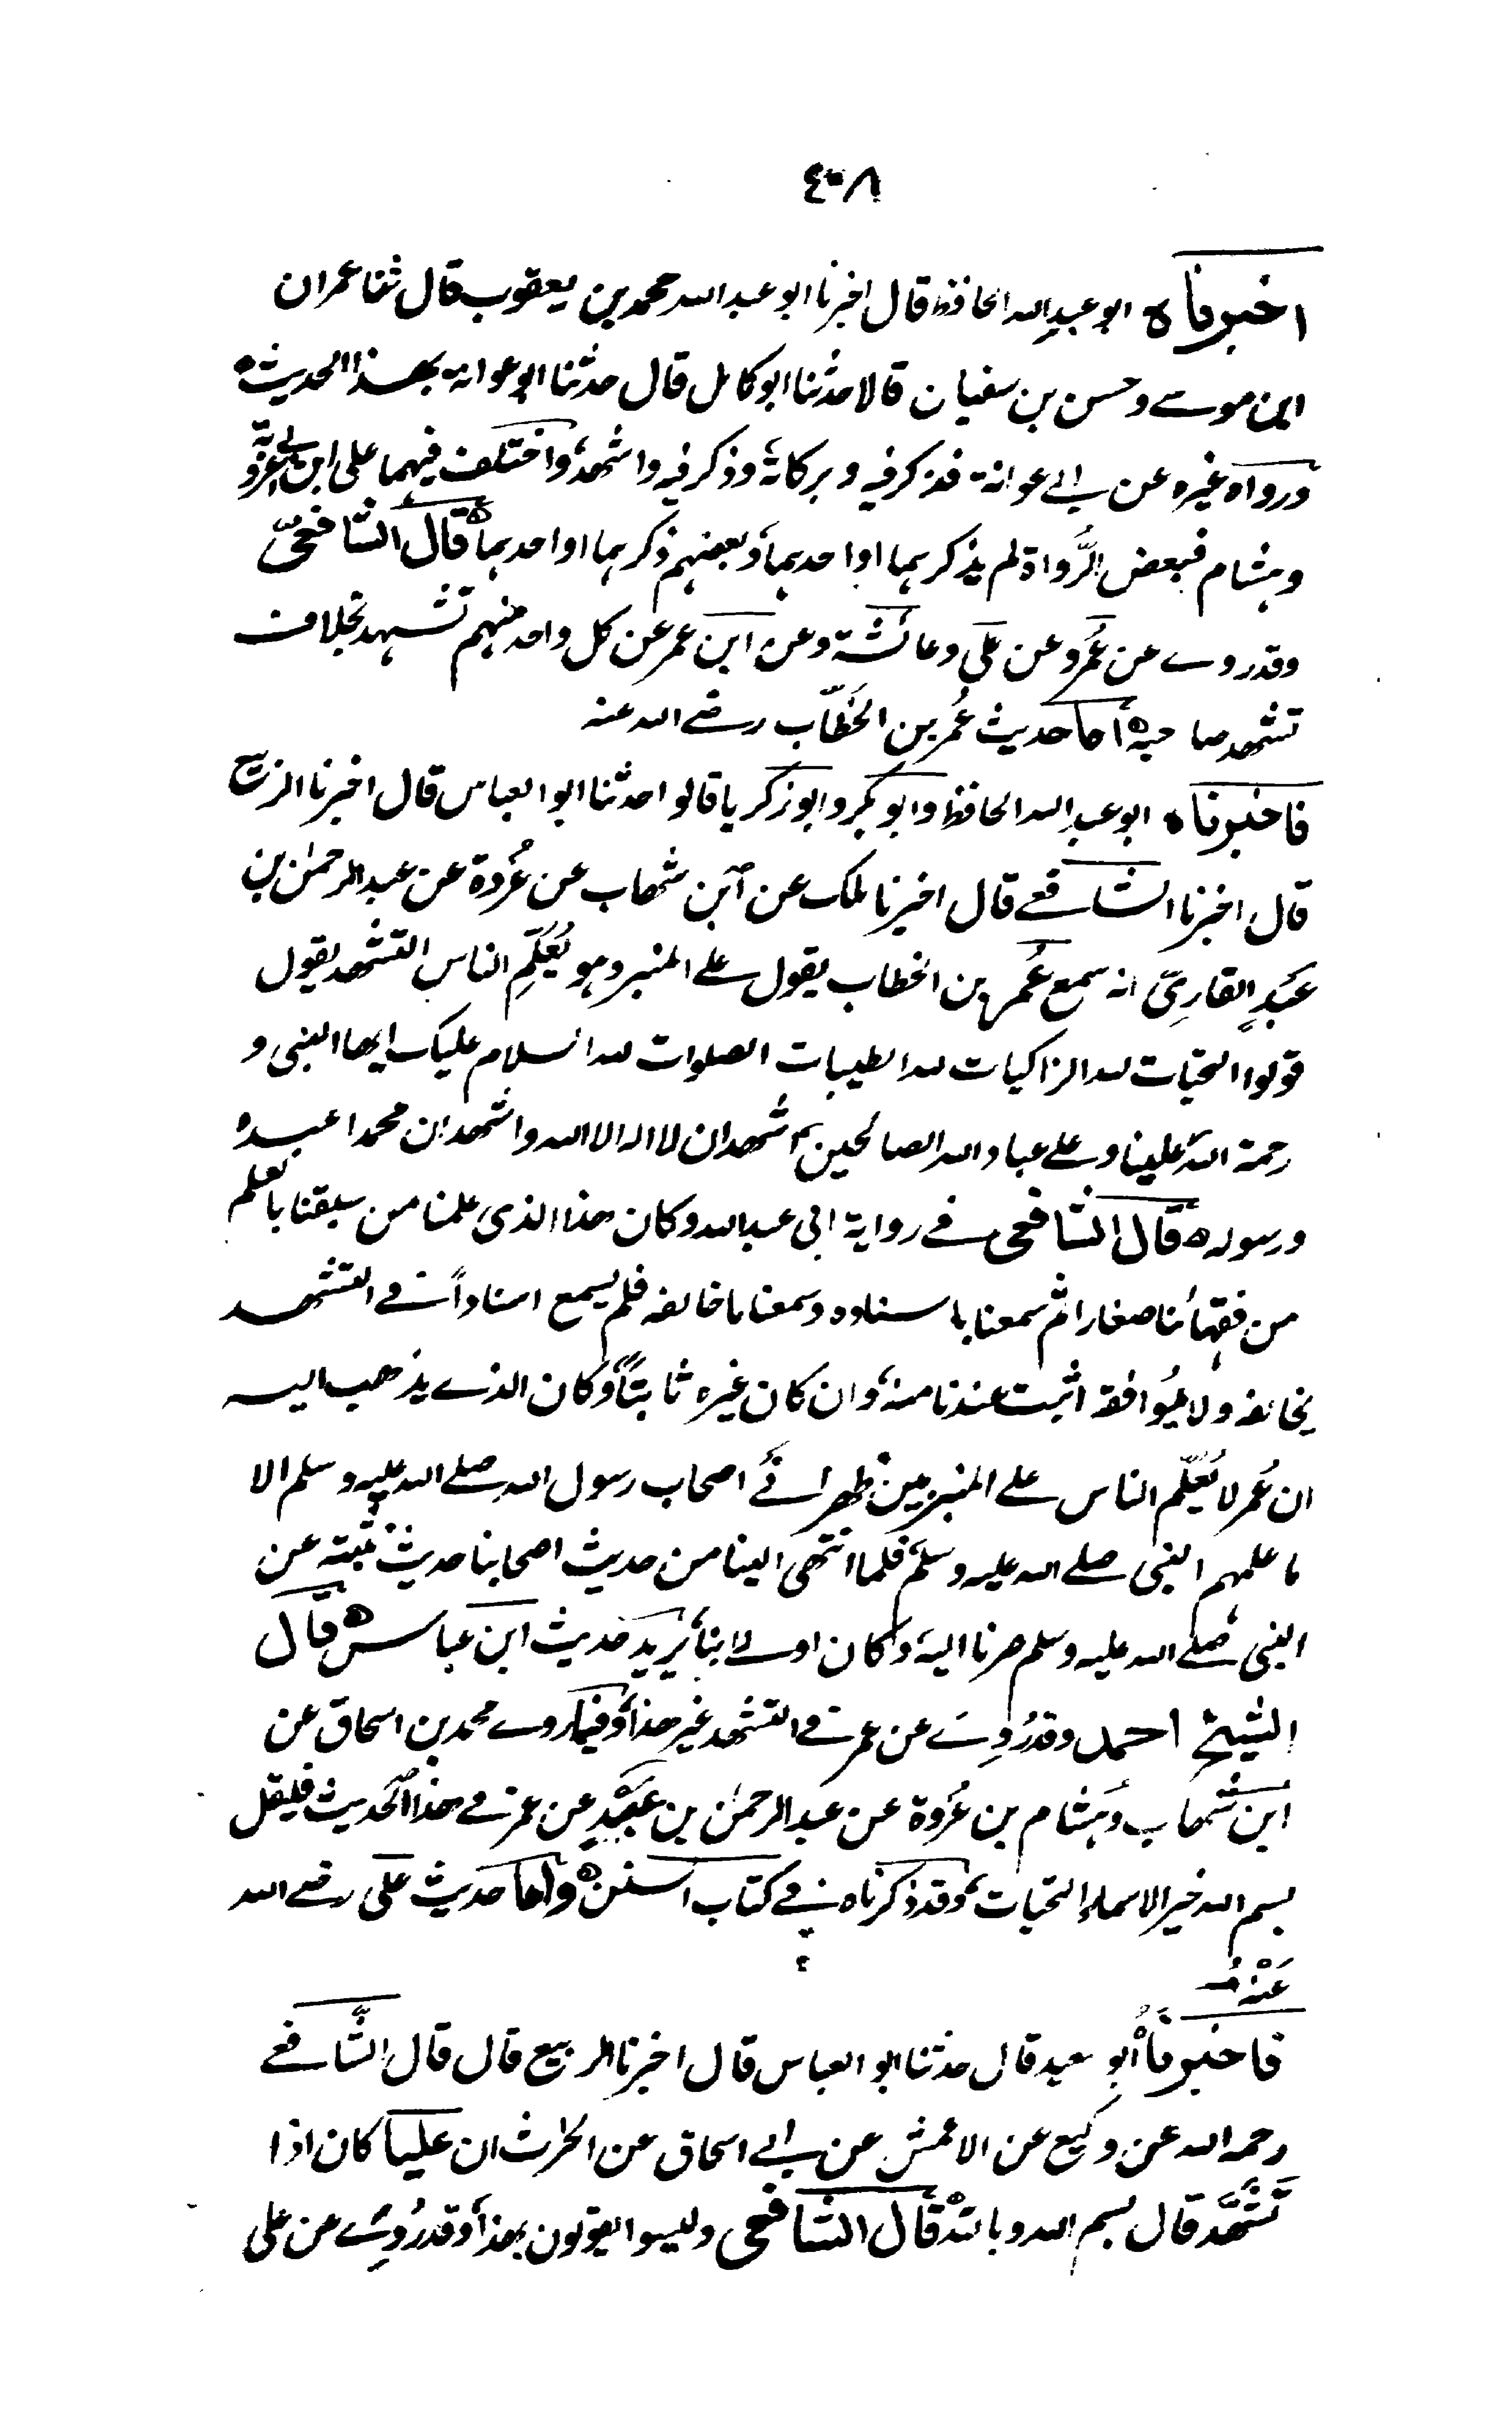 ٤٠٨
اخبرناه ابو عبد الله الحافظ قال اخبرنا ابو عبد الله محمد بن يعقوب قال ثنا عمران
ابن موسے وحسن بن سفيان قالا حدثنا ابو كامل قال حدثنا ابو عوانة بهذا الحديث ه
ورواه غيره عن ابے عوانة فذكر فيه وبركاته وذكر فيه واشهد واختلف فيهما على ابن ابي عروبة
وهشام فبعض الرُّواة لم يذكرهما او احدهما وبعضهم ذكرهما او احدهما ه قال الشافعيّ
وقد روے عن عُمر وعن علي وعائشة وعن ابن عمر عن كل واحد منهم تشهد بخلاف
تشهد صاحبه ه أما حديث عُمر بن الخَطّاب رضے الله عنه
فاخبرناه ابو عبد الله الحافظ وابو بكر وابو زكريا قالوا حدثنا ابو العباس قال اخبرنا الربيع
قال اخبرنا الشافعے قال اخبرنا ملك عن ابن شهاب عن عُروة عن عبد الرحمٰن بن
عَبدٍ القارِيّ انه سمع عُمر بن الخطاب يقول علے المنبر وهو يُعَلِّم الناس التشهد يقول
قولوا التحيات لله الزاكيات لله الطيبات الصلوات لله السلام عليك ايها النبى و
رحمة الله علينا وعلے عباد الله الصالحين اشهد ان لا اله الا الله واشهد ان محمدا عبده
ورسوله ه قال الشافعى فے رواية ابى عبد الله وكان هذا الذى علمنا من سبقنا بالعلم
من فقهائنا صغارا ثم سمعنا باسناده وسمعنا ما خالفه فلم يسمع اسناداً فے التشهد
يخالفه ولا يُوافقه اثبت عندنا منه وان كان غيره ثابتاً وكان الذے يذهب اليه
ان عُمر لا يُعَلِّم الناس على المنبر بين ظهرانَے اصحاب رسول الله صلے الله عليه وسلم الا
ما علمهم النبى صلے الله عليه وسلم فلما انتهى الينا من حديث اصحابنا حديث نثبته عن
النبى صلے الله عليه وسلم صرنا اليه وكان اولے بنا يريد حديث ابن عباس ه قال
الشيخ احمد وقد رُوِىَ عن عمر فے التشهد غير هذا وفيما روے محمد بن اسحاق عن
ابن شهاب وهشام بن عُروة عن عبد الرحمٰن بن عَبدٍ عن عمر فے هذا الحديث فليقل
بسم الله خير الاسماء التحيات وقد ذكرناه فے كتاب السنن ه واما حديث على رضے الله
عَنْهُ
فاخبرناه ابو سعيد قال حدثنا ابو العباس قال اخبرنا الربيع قال قال الشّافعے
رحمه الله عن وكيع عن الاعمش عن ابے اسحاق عن الحٰرث ان عليا كان اذا
تَشَهَّد قال بسم الله وبالله ه قال الشافعى وليسوا يقولون بهذا وقد رُوِىَ عن على